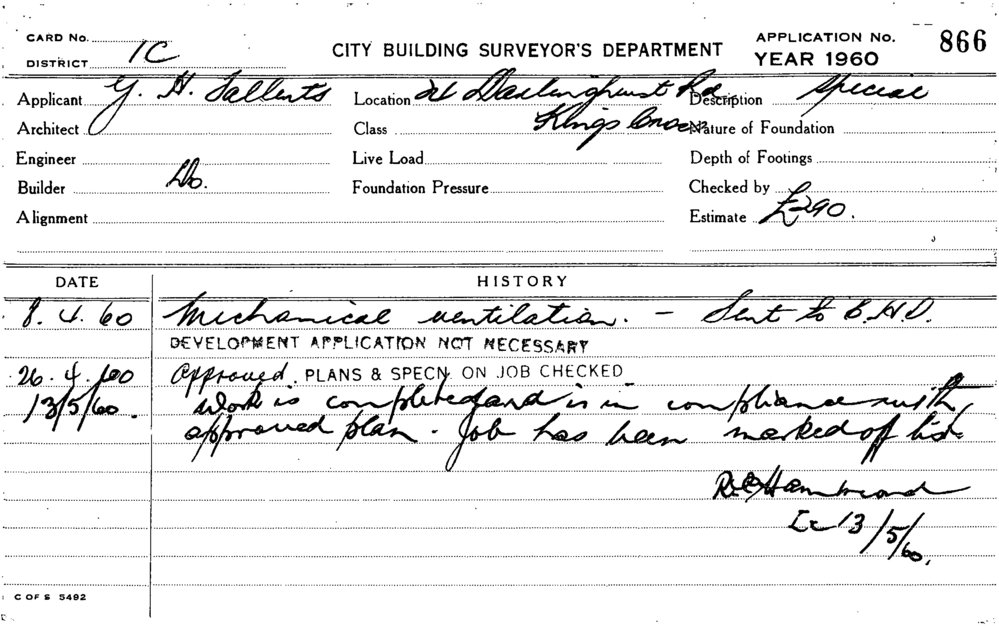 CARD No.
DISTRICT 1C
CITY BUILDING SURVEYOR'S DEPARTMENT
APPLICATION No. 866
YEAR 1960
Applicant G. H. Tallents
Location Darlinghurst Rd
Kings Cross
Description Special
Architect
Class
Nature of Foundation
Engineer
Live Load
Depth of Footings
Builder Do.
Foundation Pressure
Checked by
Alignment
Estimate £290.
DATE HISTORY
8. 4. 60 Mechanical ventilation. - Sent to B.H.D.
DEVELOPMENT APPLICATION NOT NECESSARY
26. 4. 60 Approved. PLANS & SPECN. ON JOB CHECKED
13/5/60. Work is completed and is in compliance with
approved plan. Job has been marked off list.
13/5/60.
C OF S 5492